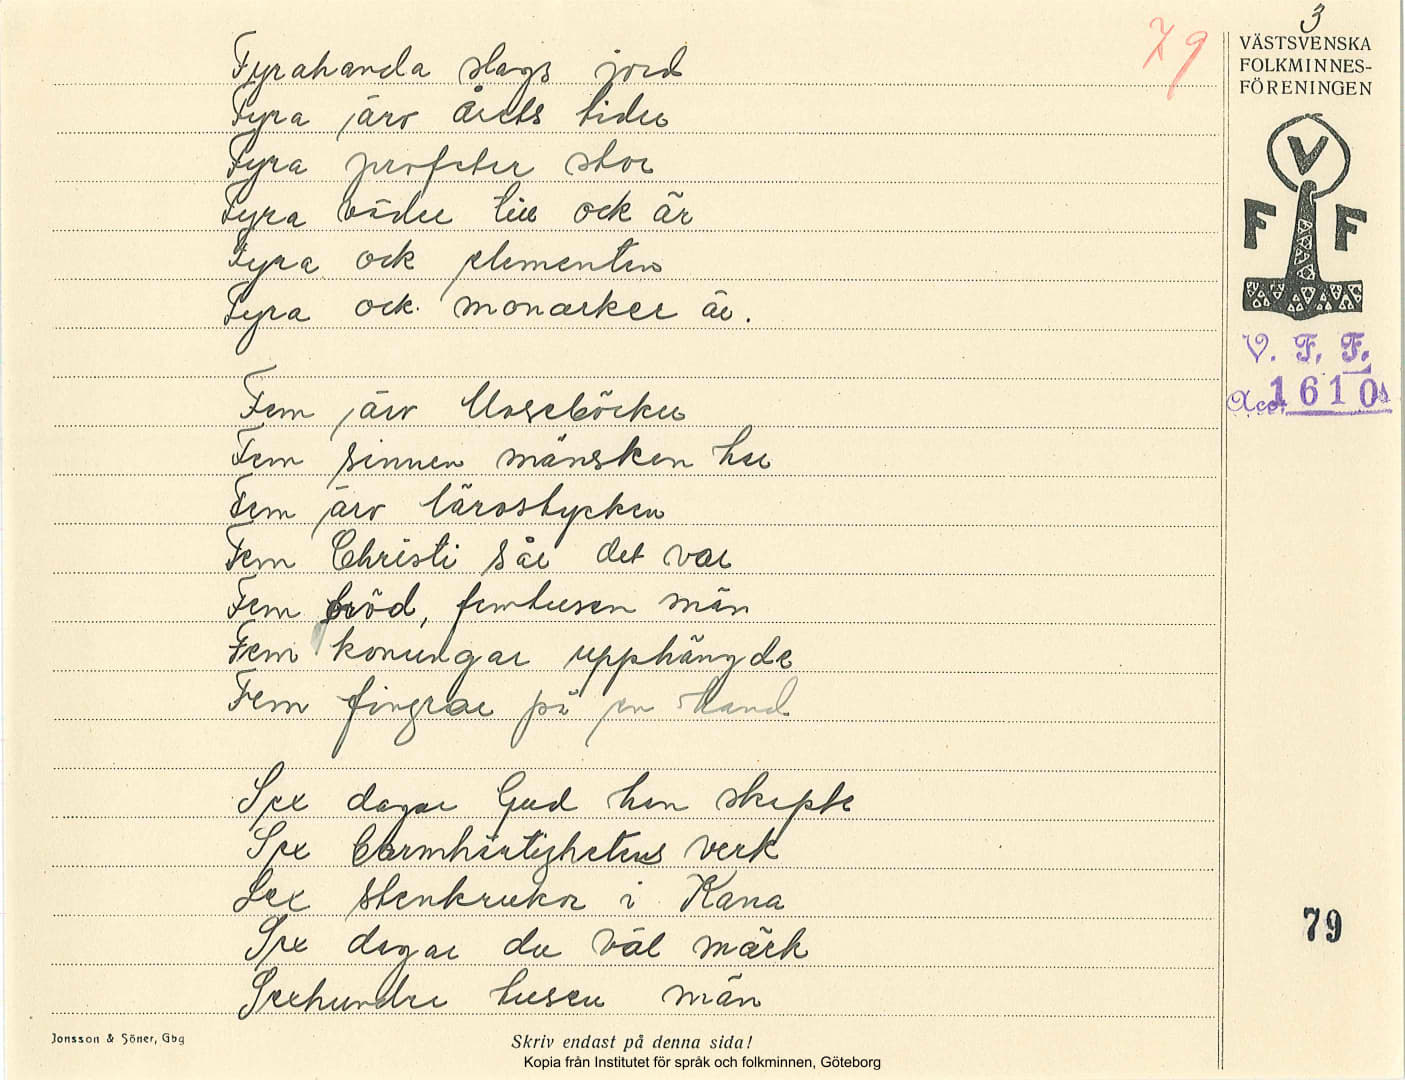 3
79
VÄSTSVENSKA
FOLKMINNES-
FÖRENINGEN
V
F F
V. F. F.
Acc. 1610
Fyrahanda slags jord
Fyra äro årets tider
Fyra profeter stor
Fyra väder till ock är
Fyra ock elementen
Fyra ock monarker är.
Fem äro Moseböcker
Fem sinnen mänsken har
Fem äro lärostycken
Fem Christi sår det var
Fem bröd, femtusen män
Fem konungar upphängde
Fem fingrar på en hand
Sex dagar Gud han skapte
Sex barmhärtighetens verk
Sex stenkrukor i Kana
Sex dagar du väl märk
Sexhundra tusen män
79
Jonsson & Söner, Gbg
Skriv endast på denna sida!
Kopia från Institutet för språk och folkminnen, Göteborg